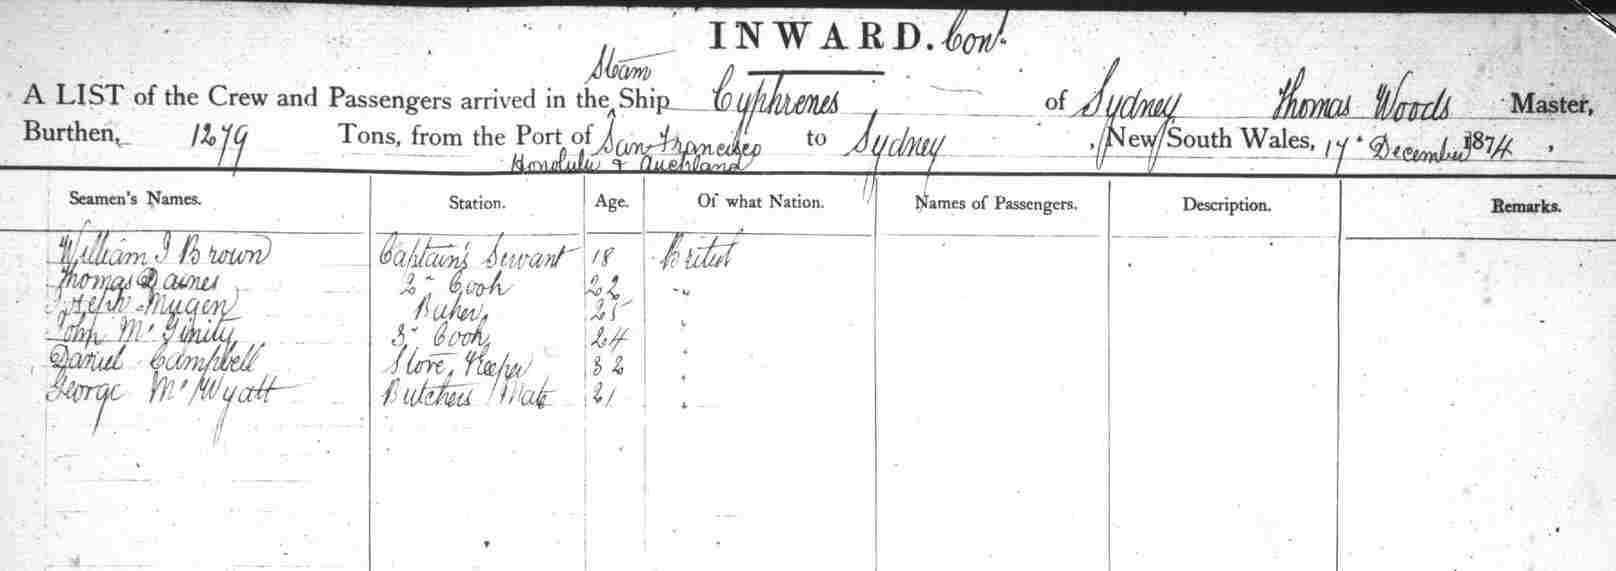 INWARD. Cont.
Steam
A LIST of the Crew and Passengers arrived in the Ship Cyphrenes of Sydney Thomas Woods Master,
Burthen, 1279 Tons, from the Port of San Francisco to Sydney, New South Wales, 17 December 1874,
Honolulu & Auckland
Seamen's Names. Station. Age. Of what Nation. Names of Passengers. Description. Remarks.
William J Brown Captain's Servant 18 British
Thomas Daines 2" Cook 22 "
Joseph Mugen Baker 25 "
John McGinity 3" Cook 24 "
Daniel Campbell Store Keeper 32 "
George McWyatt Butchers Mate 21 "